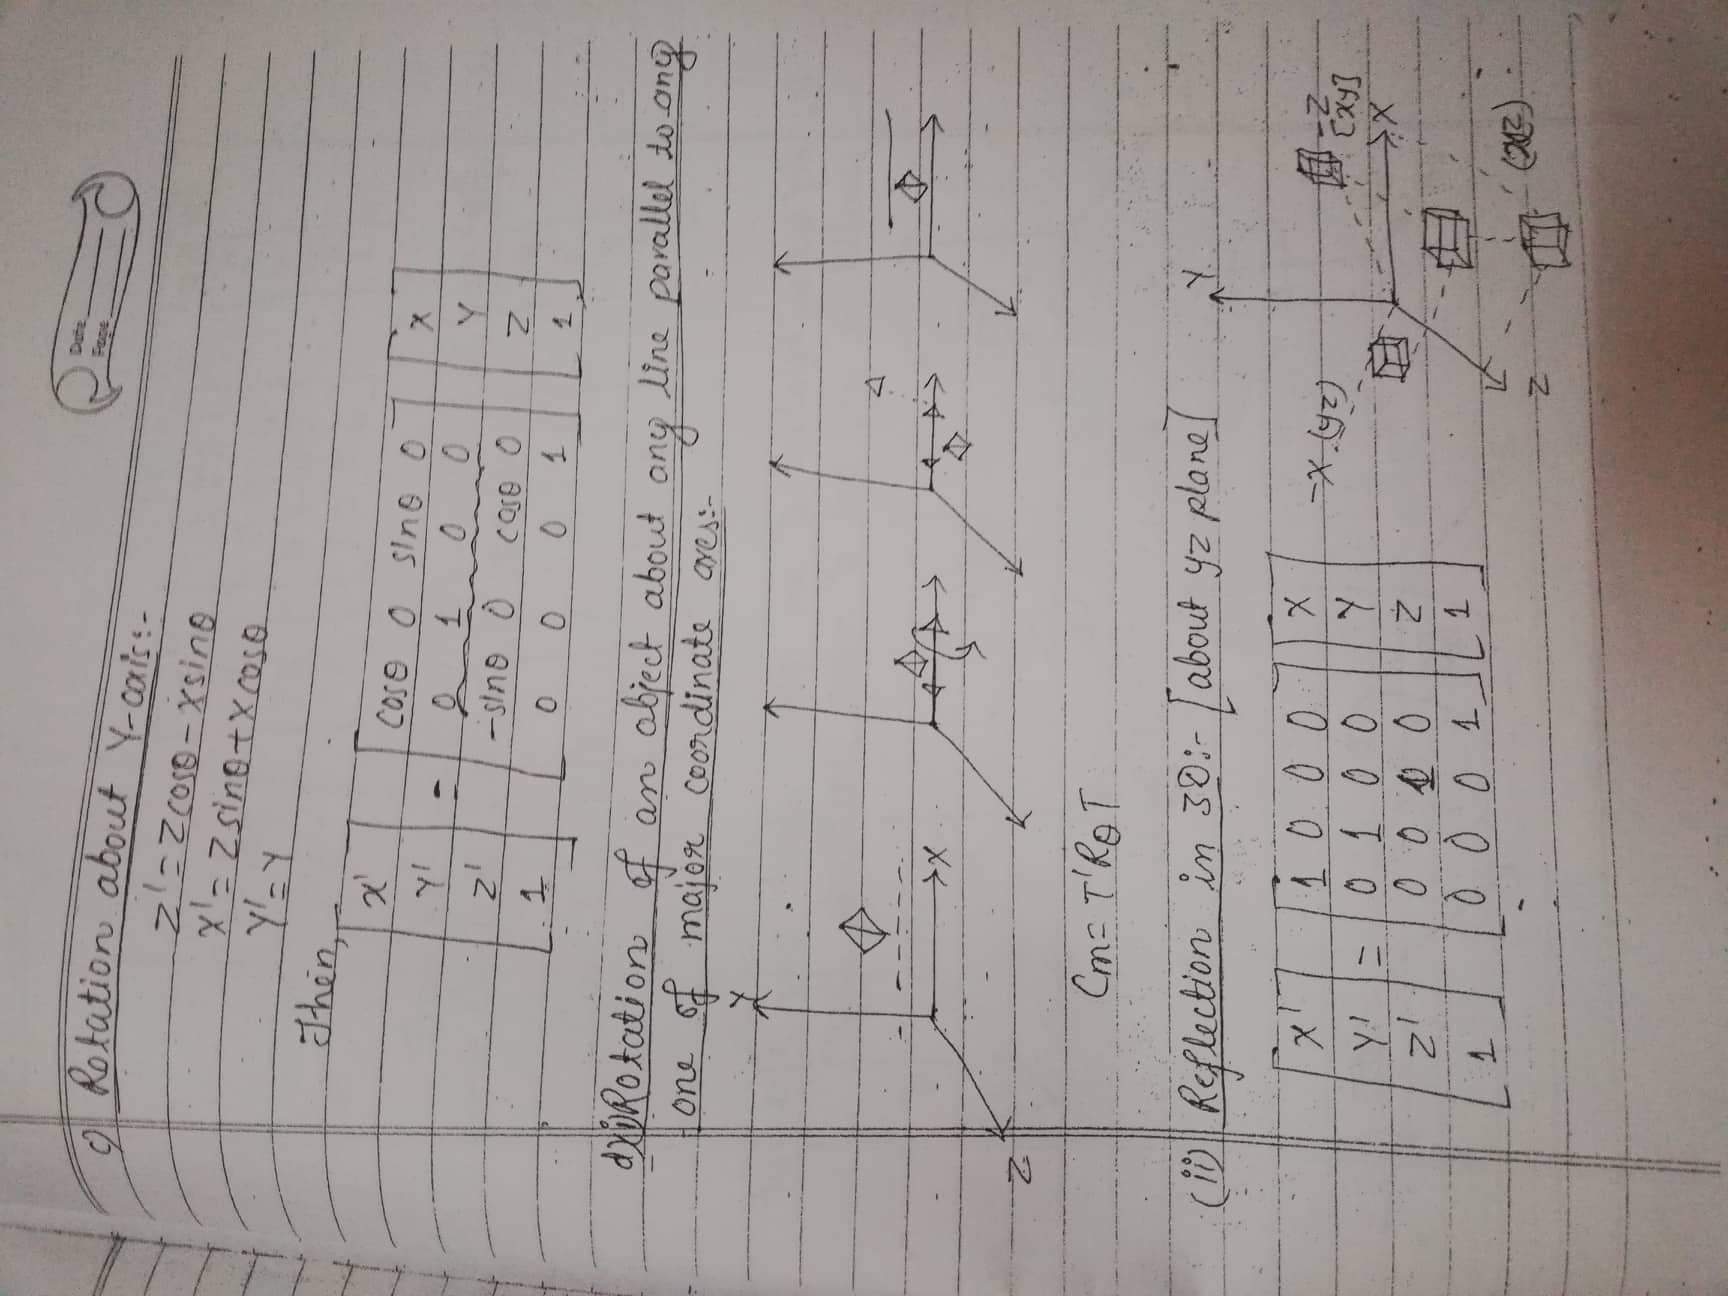 Date
Page
c) Rotation about Y-axis:-
Z' = Z cosθ - X sinθ
X' = Z sinθ + X cosθ
Y' = Y
Then,
X' cosθ 0 sinθ 0 X
Y' = 0 1 0 0 Y
Z' -sinθ 0 cosθ 0 Z
1 0 0 0 1 1
d) i) Rotation of an object about any line parallel to any
one of major coordinate axes:-
Y
X
Z
Cm = T' Rθ T
(ii) Reflection in 3D:- [about yz plane]
X' 1 0 0 0 X
Y' = 0 1 0 0 Y
Z' 0 0 1 0 Z
1 0 0 0 1 1
Y
-X (yz)
-Z
[xy]
X
Z
(xz)